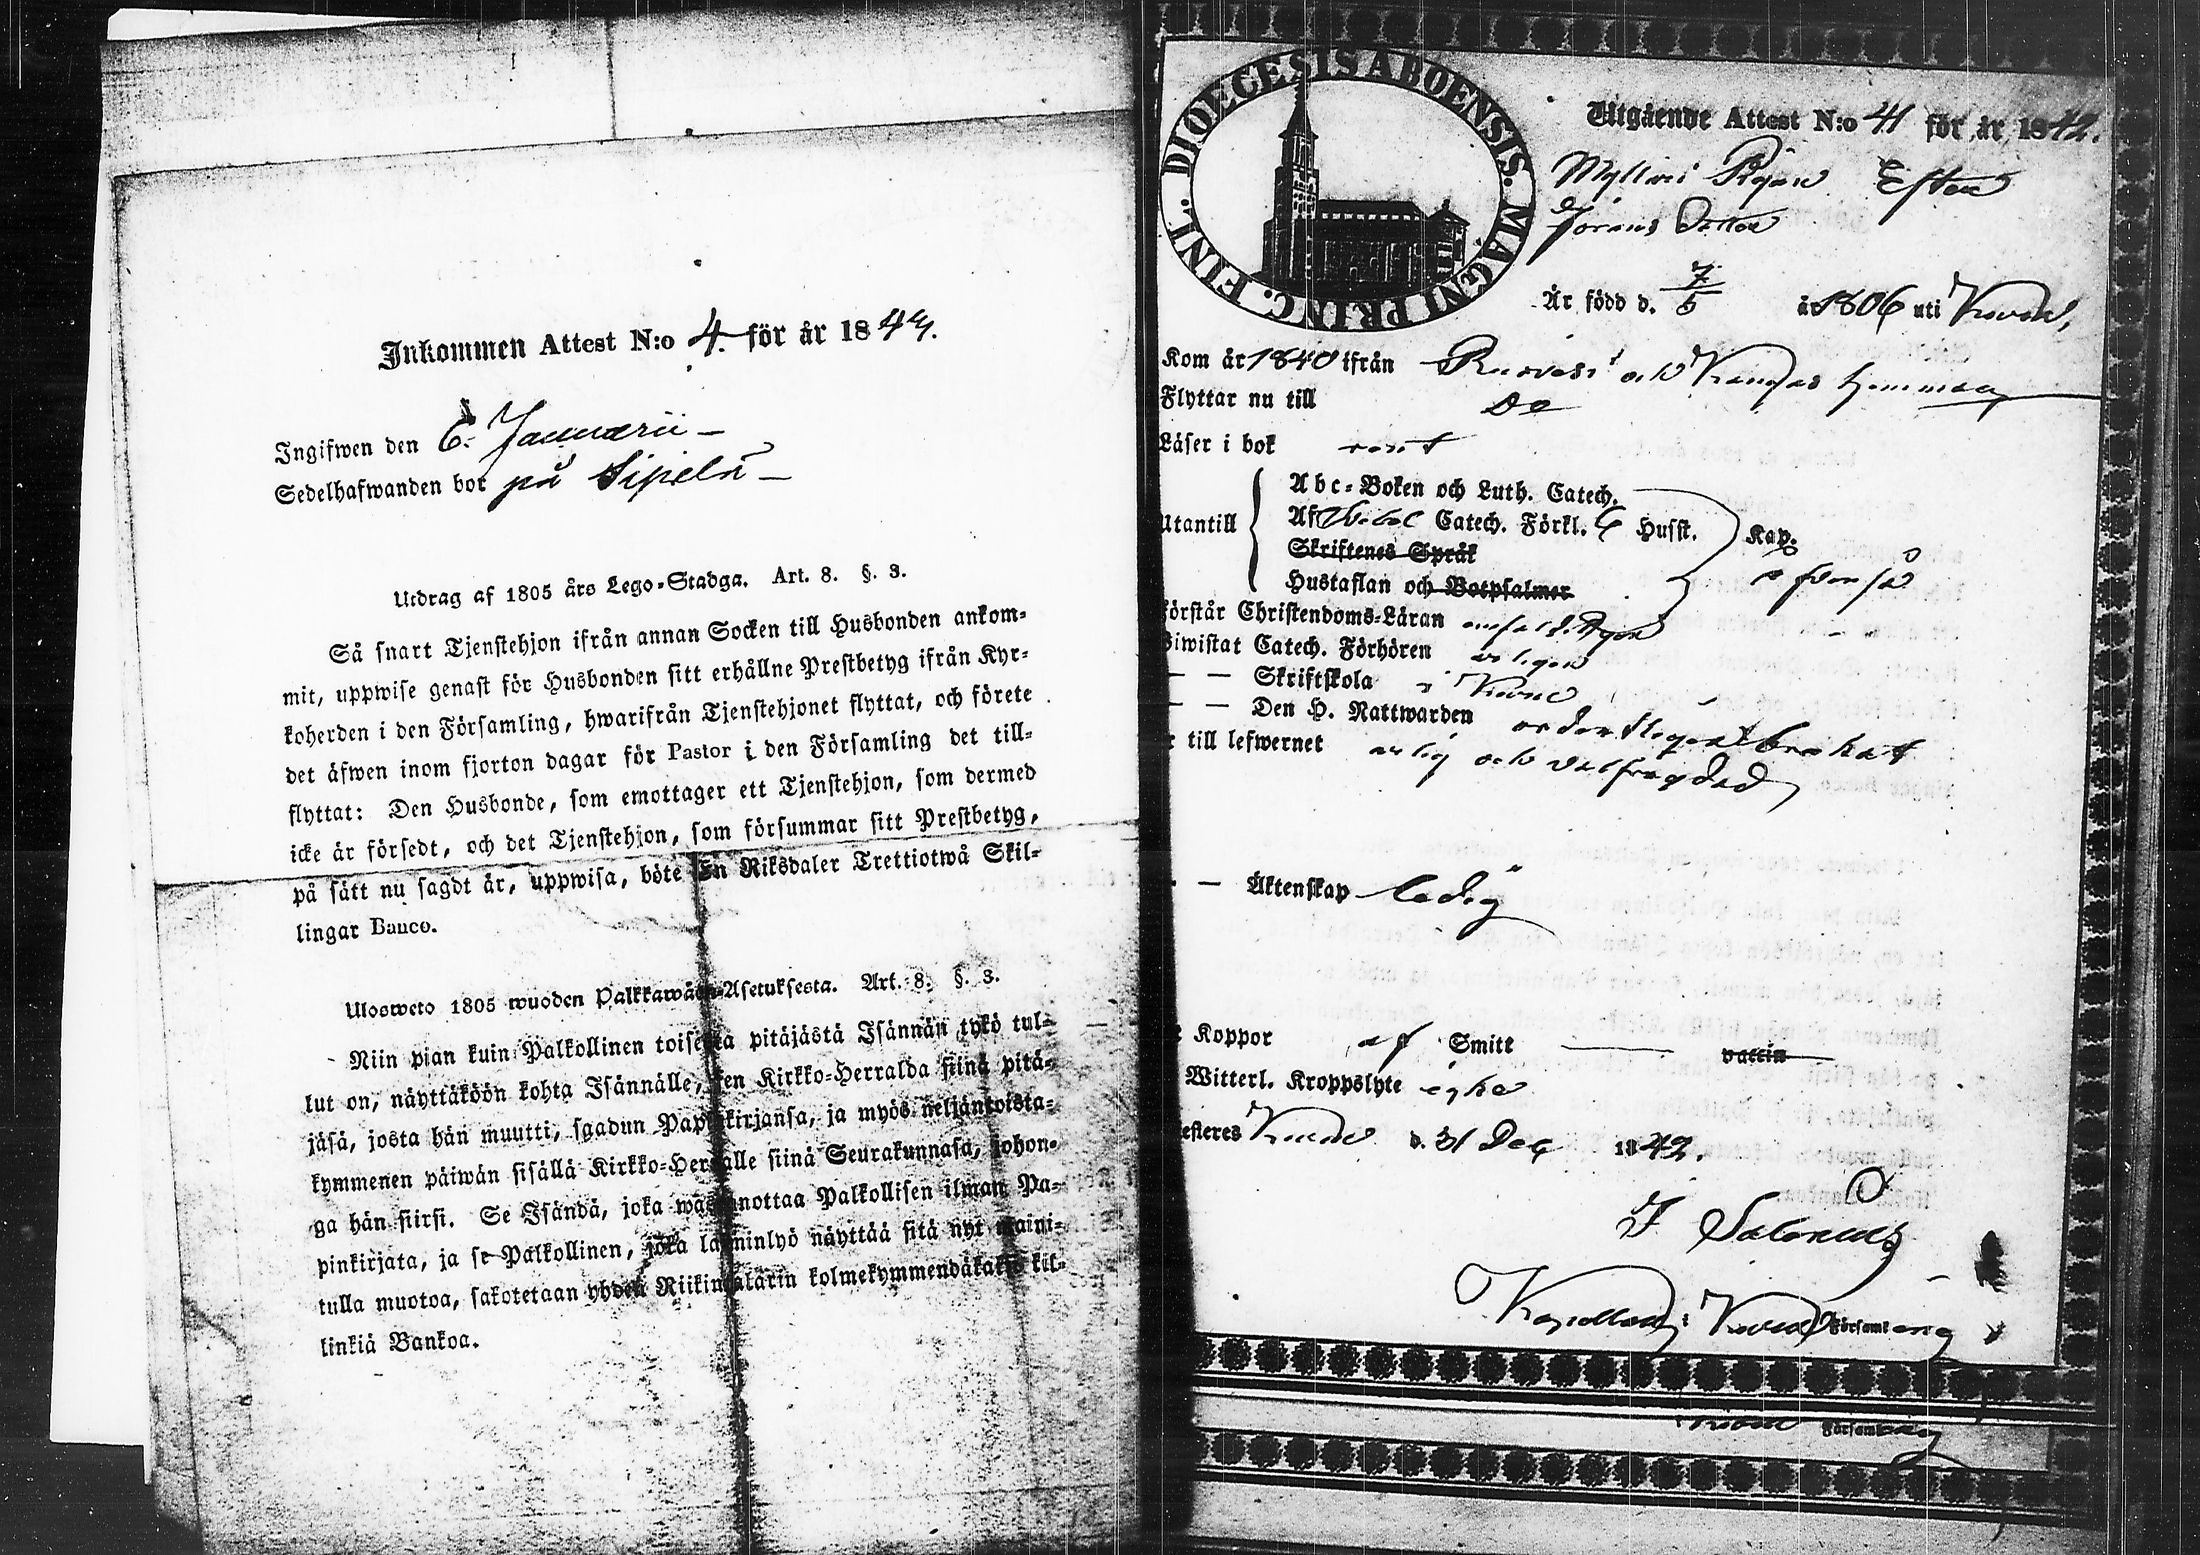 Inkommen Attest N:o 4. för år 1844.
Ingifwen den 6. Januarii –
Sedelhafwanden bor på Sipilä –
Utdrag af 1805 års Lego-Stadga. Art. 8. §. 3.
Så snart Tjenstehjon ifrån annan Socken till Husbonden ankom-
mit, uppwise genast för Husbonden sitt erhållne Prestbetyg ifrån Kyr-
koherden i den Församling, hwarifrån Tjenstehjonet flyttat, och förete
det äfwen inom fjorton dagar för Pastor i den Församling det till-
flyttat: Den Husbonde, som emottager ett Tjenstehjon, som dermed
icke är försedt, och det Tjenstehjon, som försummar sitt Prestbetyg,
på sätt nu sagdt är, uppwisa, böte En Riksdaler Trettiotwå Skil-
lingar Banco.
Ulosweto 1805 wuoden Palkkawäen-Asetuksesta. Art. 8. §. 3.
Niin pian kuin Palkollinen toisesta pitäjästä Isännän tykö tul-
lut on, näyttäköön kohta Isännälle, sen Kirkko-Herralda siinä pitä-
jäsä, josta hän muutti, sgadun Papinkirjansa, ja myös neljäntoista-
kymmenen päiwän sisällä Kirkko-Herralle siinä Seurakunnasa, johon-
ga hän siirsi. Se Isändä, joka wastanottaa Palkollisen ilman Pa-
pinkirjata, ja se Palkollinen, joka laiminlyö näyttää sitä nyt maini-
tulla muotoa, sakotetaan yhden Riikintalarin kolmekymmendäkaksi kil-
linkiä Bankoa.
DIOECESIS ABOENSIS. MAGNI PRINC. FINL.
Utgående Attest N:o 41 för år 1842.
Pigan Ester
Jörans Dotter
Är född d. 7/5 år 1806 uti
Kom år 1840 ifrån Ruovesi och Kangas hemman
Flyttar nu till Do
Läser i bok rent
Utantill
Abc-Boken och Luth. Catech.
Af Catech. Förkl. Husst. Kap.
Skriftenes Språk
Hustaflan och Botpsalmer
förstår Christendoms-Läran enfaldigen
Biwistat Catech. Förhören årligen
— — Skriftskola i
— — Den H. Nattwarden ordentligen brukat
r till lefwernet ärlig och välfrägdad
— Äktenskap ledig
Koppor af Smitt — vaccin
Witterl. Kroppslyte ejga
esteres d. 31 Dec 1842.
Kapellan i Församling
Församling